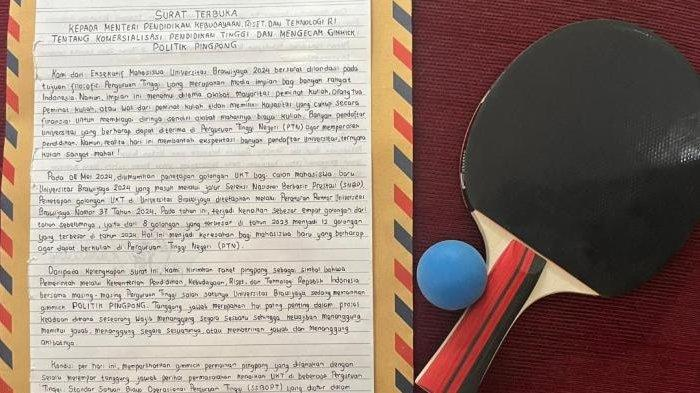 SURAT TERBUKA
KEPADA MENTERI PENDIDIKAN KEBUDAYAAN, RISET, DAN TEKNOLOGI RI
TENTANG KOMERSIALISASI PENDIDIKAN TINGGI DAN MENGECAM GIMMICK
POLITIK PINGPONG
Kami dari Eksekutif Mahasiswa Universitas Brawijaya 2024 bersurat dilandasi pada
tujuan filosofis Perguruan Tinggi yang merupakan media impian bagi banyak rakyat
Indonesia. Namun, impian ini menemui dilema akibat mayoritas peminat kuliah, orang tua
peminat kuliah, atau wali dari peminat kuliah tidak memiliki kapasitas yang cukup secara
finansial untuk membiayai dirinya sendiri akibat mahalnya biaya kuliah. Banyak pendaftar
universitas yang berharap dapat diterima di Perguruan Tinggi Negeri (PTN) agar memperoleh
pendidikan. Namun, realita hari ini membantah ekspektasi banyak pendaftar universitas, ternyata
kuliah sangat mahal!
Pada 08 Mei 2024, diumumkan penetapan golongan UKT bagi calon mahasiswa baru
Universitas Brawijaya 2024 yang masuk melalui jalur Seleksi Nasional Berbasis Prestasi (SNBP).
Penetapan golongan UKT di Universitas Brawijaya ditetapkan melalui Peraturan Rektor Universitas
Brawijaya Nomor 37 Tahun 2024. Pada tahun ini, terjadi kenaikan sebesar empat golongan dari
tahun sebelumnya, yaitu dari 8 golongan yang terbesar di tahun 2023 menjadi 12 golongan
yang terbesar di tahun 2024. Hal ini menjadi keresahan bagi mahasiswa baru yang berharap
agar dapat berkuliah di Perguruan Tinggi Negeri (PTN).
Daripada kelengkapan surat ini, kami kirimkan raket pingpong sebagai simbol bahwa
Pemerintah melalui Kementerian Pendidikan, Kebudayaan, Riset, dan Teknologi Republik Indonesia
bersama masing-masing Perguruan Tinggi salah satunya Universitas Brawijaya sedang memainkan
gimmick POLITIK PINGPONG. Tanggung jawab merupakan hal paling penting dalam proses
keadaan dimana seseorang wajib menanggung segala sesuatu sehingga kewajiban menanggung,
memikul jawab, menanggung segala sesuatunya, atau memberikan jawab dan menanggung
akibatnya.
Kondisi per hari ini, memperlihatkan gimmick permainan pingpong yang dilakukan dengan
selalu melempar tanggung jawab perihal permasalahan kenaikan UKT di beberapa Perguruan
Tinggi. Standar Satuan Biaya Operasional Perguruan Tinggi (SSBOPT) yang diatur dalam